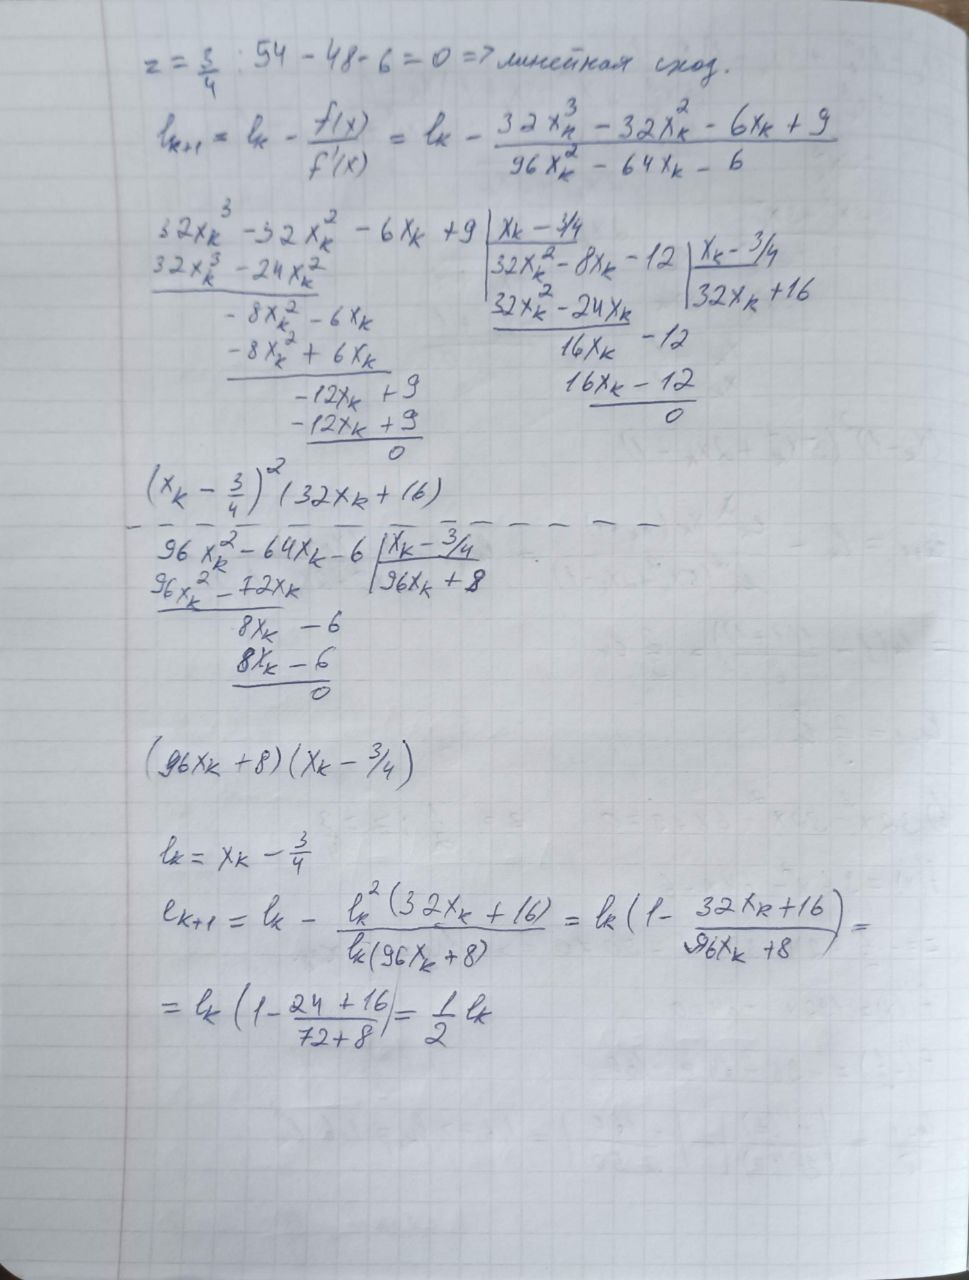 z = 3/4 : 54 - 48 - 6 = 0 => линейная сход.
l_{k+1} = l_k - f(x)/f'(x) = l_k - (32x_k^3 - 32x_k^2 - 6x_k + 9)/(96x_k^2 - 64x_k - 6)
32x_k^3 - 32x_k^2 - 6x_k + 9 | x_k - 3/4
32x_k^3 - 24x_k^2 | 32x_k^2 - 8x_k - 12 | x_k - 3/4
- 8x_k^2 - 6x_k | 32x_k^2 - 24x_k | 32x_k + 16
- 8x_k^2 + 6x_k 16x_k - 12
- 12x_k + 9 16x_k - 12
- 12x_k + 9 0
0
(x_k - 3/4)^2 (32x_k + 16)
96x_k^2 - 64x_k - 6 | x_k - 3/4
96x_k^2 - 72x_k | 96x_k + 8
8x_k - 6
8x_k - 6
0
(96x_k + 8)(x_k - 3/4)
l_k = x_k - 3/4
e_{k+1} = l_k - l_k^2(32x_k + 16)/l_k(96x_k + 8) = l_k(1 - (32x_k + 16)/(96x_k + 8)) =
= l_k (1 - (24 + 16)/(72 + 8)) = 1/2 l_k